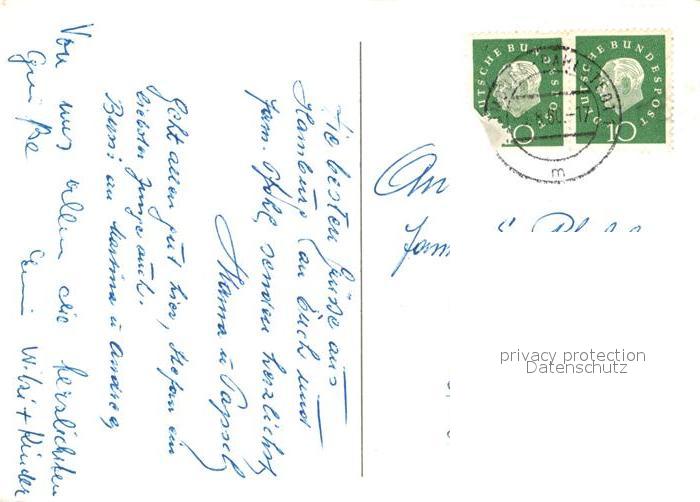 Die besten Grüße aus
Hamburg an Euch und
Fam. Pohl, senden herzlichst
Mama u Papsch
Geht allen gut hier, Stefan ein
lieber Junge auch.
Bussi an Martina u Andrea
Von uns allen die herzlichsten
Grüße Wilxi + Kinder
An
Fam
DEUTSCHE BUNDESPOST
10
DEUTSCHE BUNDESPOST
10
m
privacy protection
Datenschutz